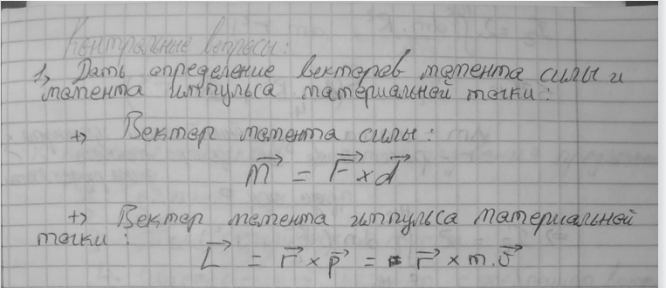 Контрольные вопросы:
1, Дать определение векторов момента силы и
момента импульса материальной точки:
+) Вектор момента силы:
m⃗ = F⃗ × d⃗
+) Вектор момента импульса материальной
точки:
L⃗ = r⃗ × p⃗ = r⃗ × m.v⃗